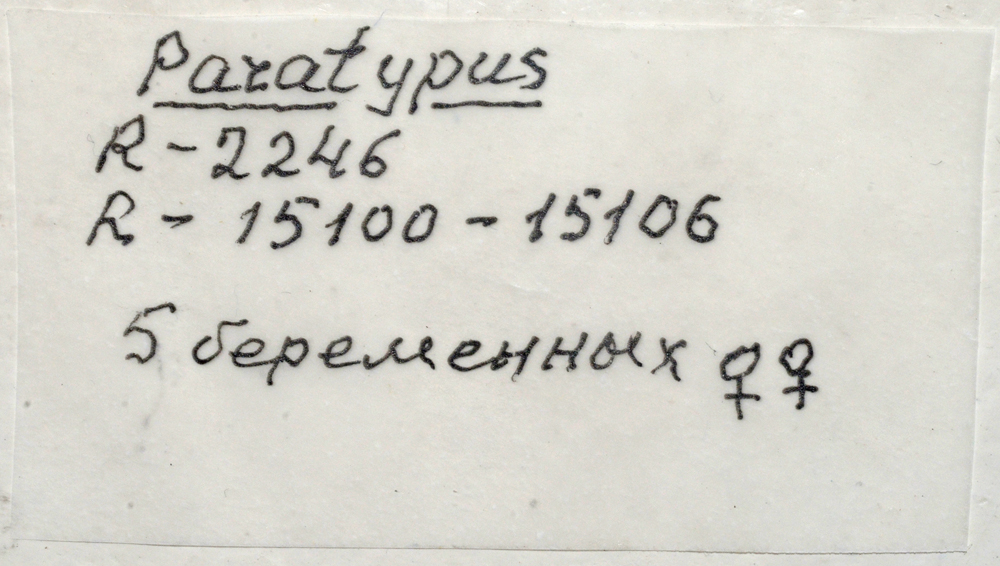 Paratypus
R-2246
R- 15100-15106
5 беременных ♀♀